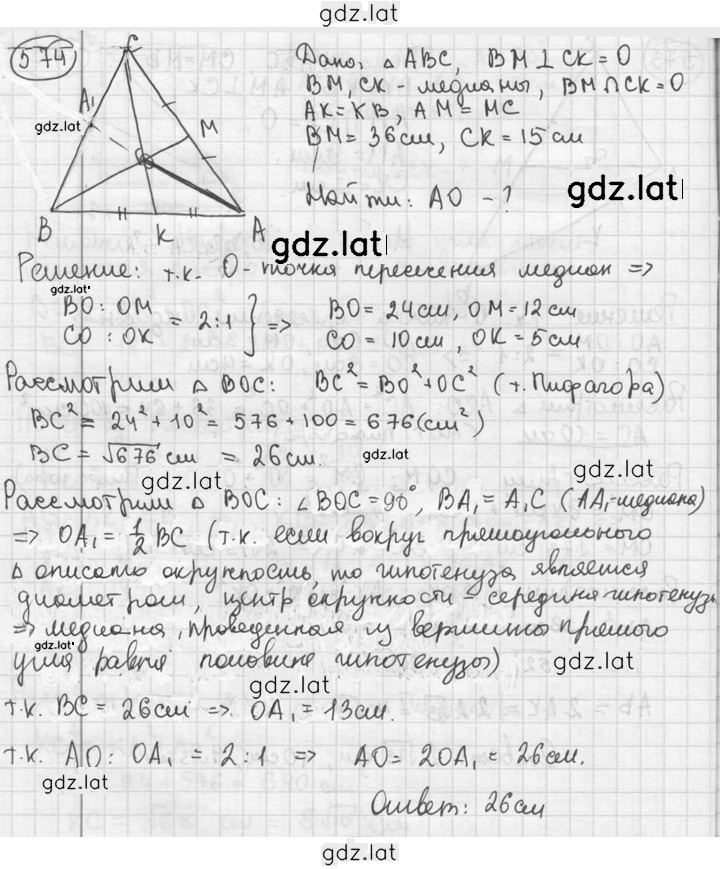 gdz.lat
574
Дано: △ABC, BM⊥CK=O
BM, CK - медианы, BM∩CK=O
AK=KB, AM=MC
BM=36см, CK=15см
Найти: AO - ?
gdz.lat
C
A₁
gdz.lat
M
O
B
K
A
gdz.lat
Решение: т.к. O - точка пересечения медиан =>
gdz.lat
BO:OM
CO:OK = 2:1 } => BO=24см, OM=12см
CO=10см, OK=5см
Рассмотрим △BOC: BC²=BO²+OC² (т. Пифагора)
BC²=24²+10²=576+100=676(см²)
BC=√676 см = 26см.
gdz.lat
gdz.lat
gdz.lat
Рассмотрим △BOC: ∠BOC=90°, BA₁=A₁C (AA₁-медиана)
=> OA₁=1/2 BC (т.к. если вокруг прямоугольного
△ описать окружность, то гипотенуза является
диаметром, центр окружности - середина гипотенузы
=> медиана, проведенная из вершины прямого
gdz.lat
угла равна половине гипотенузы)
gdz.lat
gdz.lat
т.к. BC=26см => OA₁=13см.
т.к. AO:OA₁=2:1 => AO=2OA₁=26см.
gdz.lat
Ответ: 26см
gdz.lat